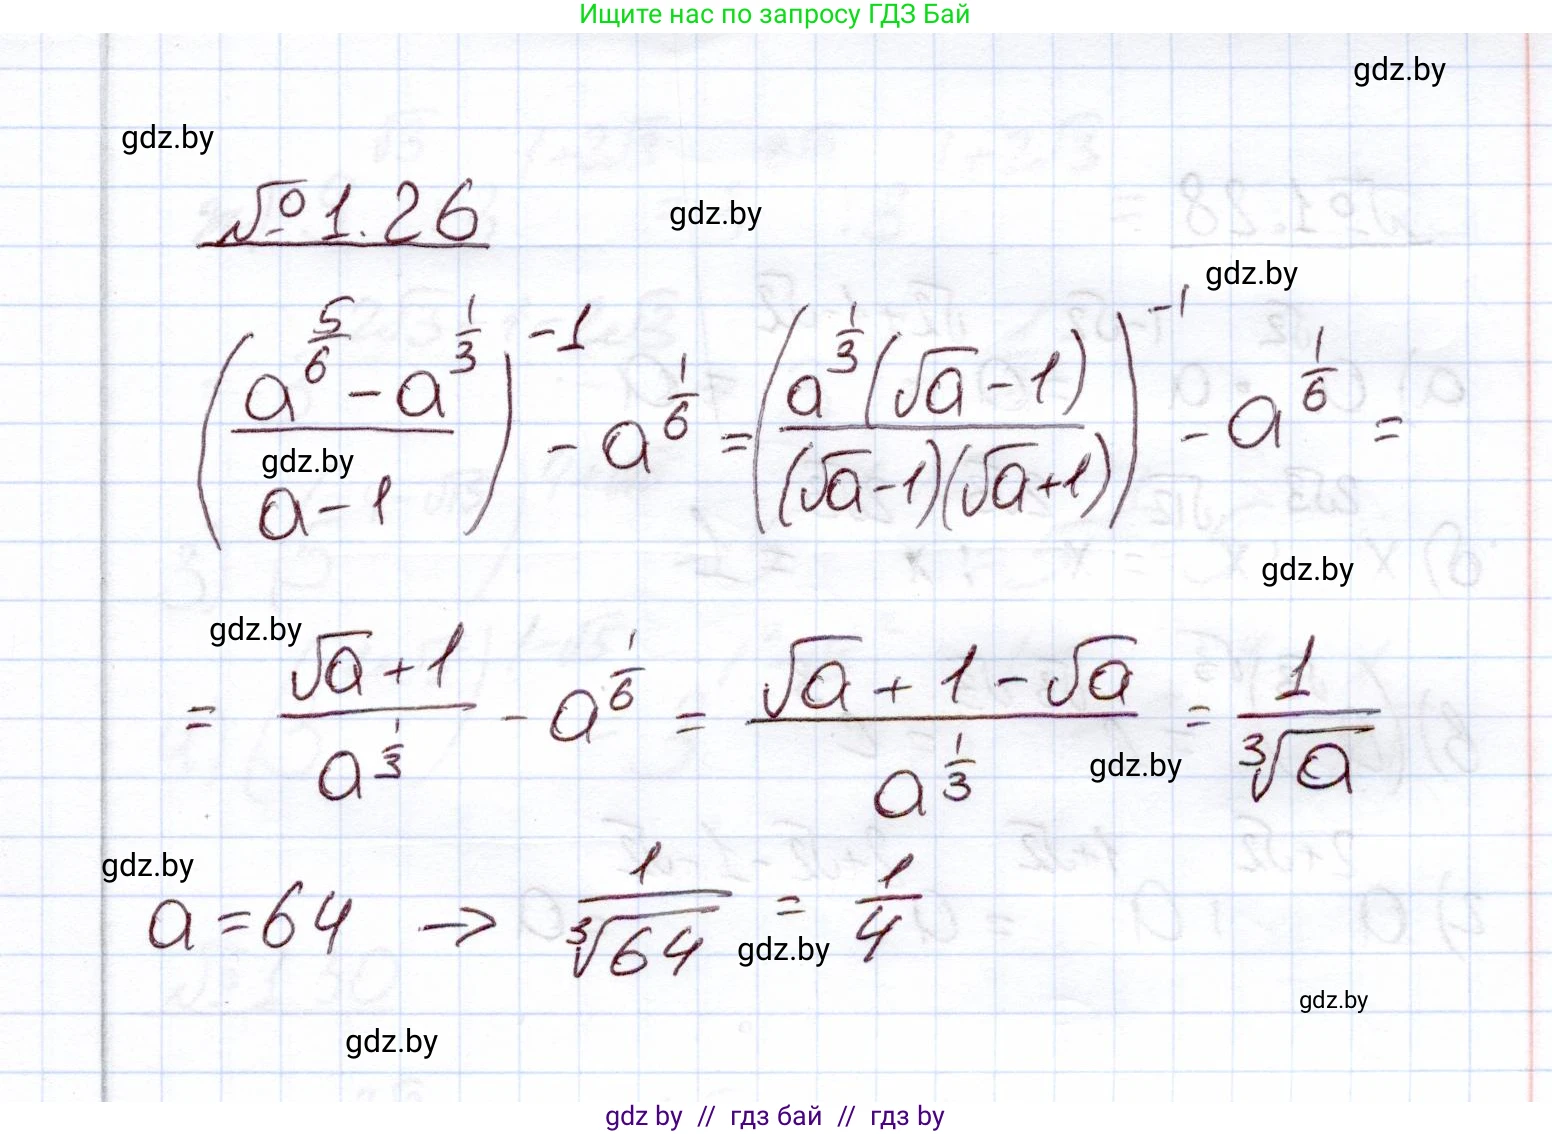 Ищите нас по запросу ГДЗ Бай
gdz.by
gdz.by
№1.26
gdz.by
gdz.by
(a^(5/6) - a^(1/3) / a - 1)^(-1) - a^(1/6) = (a^(1/3)(√a - 1) / (√a - 1)(√a + 1))^(-1) - a^(1/6) =
gdz.by
gdz.by
gdz.by
= √a + 1 / a^(1/3) - a^(1/6) = √a + 1 - √a / a^(1/3) = 1 / ∛a
gdz.by
gdz.by
a = 64 → 1 / ∛64 = 1/4
gdz.by
gdz.by
gdz.by
gdz by // гдз бай // гдз by